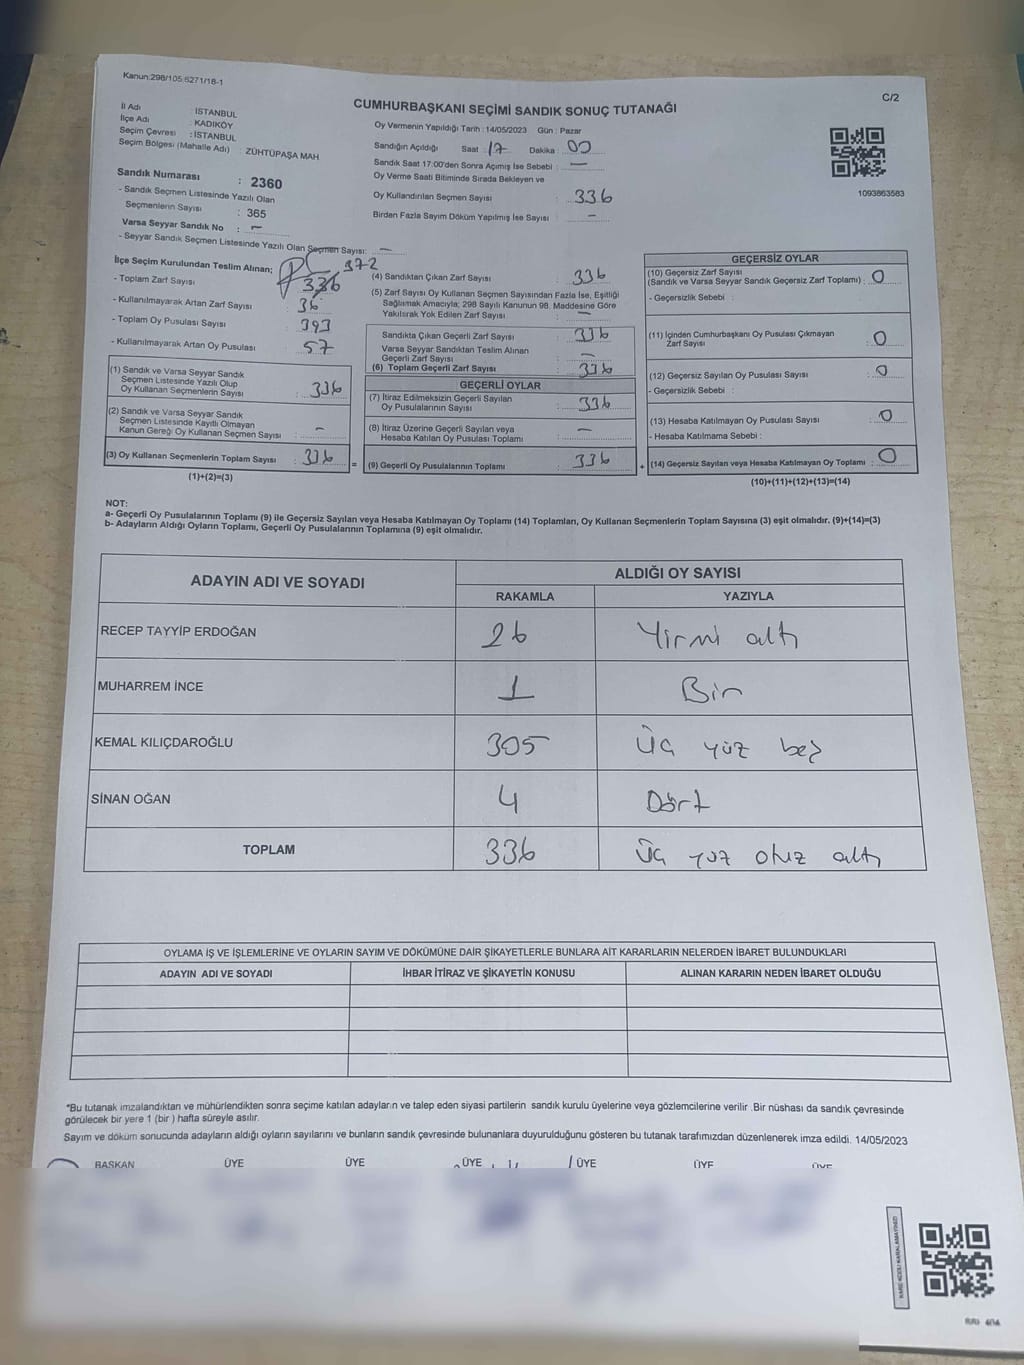 Kanun:298/105 6271/18-1
C/2
CUMHURBAŞKANI SEÇİMİ SANDIK SONUÇ TUTANAĞI
İl Adı : İSTANBUL
İlçe Adı : KADIKÖY
Seçim Çevresi : İSTANBUL
Seçim Bölgesi (Mahalle Adı) : ZÜHTÜPAŞA MAH
Sandık Numarası : 2360
- Sandık Seçmen Listesinde Yazılı Olan
Seçmenlerin Sayısı : 365
Varsa Seyyar Sandık No : -
- Seyyar Sandık Seçmen Listesinde Yazılı Olan Seçmen Sayısı: -
Oy Vermenin Yapıldığı Tarih : 14/05/2023 Gün : Pazar
Sandığın Açıldığı Saat 17 Dakika : 00
Sandık Saat 17:00'den Sonra Açımış İse Sebebi : -
Oy Verme Saati Bitiminde Sırada Bekleyen ve
Oy Kullandırılan Seçmen Sayısı : 336
Birden Fazla Sayım Döküm Yapılmış İse Sayısı : -
1093863583
İlçe Seçim Kurulundan Teslim Alınan;
372
- Toplam Zarf Sayısı : 336
- Kullanılmayarak Artan Zarf Sayısı : 36
- Toplam Oy Pusulası Sayısı : 393
- Kullanılmayarak Artan Oy Pusulası : 57
(1) Sandık ve Varsa Seyyar Sandık
Seçmen Listesinde Yazılı Olup
Oy Kullanan Seçmenlerin Sayısı : 336
(2) Sandık ve Varsa Seyyar Sandık
Seçmen Listesinde Kayıtlı Olmayan
Kanun Gereği Oy Kullanan Seçmen Sayısı : -
(3) Oy Kullanan Seçmenlerin Toplam Sayısı : 336
(1)+(2)=(3)
=
(4) Sandıktan Çıkan Zarf Sayısı : 336
(5) Zarf Sayısı Oy Kullanan Seçmen Sayısından Fazla İse, Eşitliği
Sağlamak Amacıyla; 298 Sayılı Kanunun 98. Maddesine Göre
Yakılarak Yok Edilen Zarf Sayısı : -
Sandıkta Çıkan Geçerli Zarf Sayısı : 336
Varsa Seyyar Sandıktan Teslim Alınan
Geçerli Zarf Sayısı : -
(6) Toplam Geçerli Zarf Sayısı : 336
GEÇERLİ OYLAR
(7) İtiraz Edilmeksizin Geçerli Sayılan
Oy Pusulalarının Sayısı : 336
(8) İtiraz Üzerine Geçerli Sayılan veya
Hesaba Katılan Oy Pusulası Toplamı : -
(9) Geçerli Oy Pusulalarının Toplamı : 336
+
GEÇERSİZ OYLAR
(10) Geçersiz Zarf Sayısı
(Sandık ve Varsa Seyyar Sandık Geçersiz Zarf Toplamı) : 0
- Geçersizlik Sebebi :
(11) İçinden Cumhurbaşkanı Oy Pusulası Çıkmayan
Zarf Sayısı : 0
(12) Geçersiz Sayılan Oy Pusulası Sayısı : 0
- Geçersizlik Sebebi :
(13) Hesaba Katılmayan Oy Pusulası Sayısı : 0
- Hesaba Katılmama Sebebi :
(14) Geçersiz Sayılan veya Hesaba Katılmayan Oy Toplamı : 0
(10)+(11)+(12)+(13)=(14)
NOT:
a- Geçerli Oy Pusulalarının Toplamı (9) ile Geçersiz Sayılan veya Hesaba Katılmayan Oy Toplamı (14) Toplamları, Oy Kullanan Seçmenlerin Toplam Sayısına (3) eşit olmalıdır. (9)+(14)=(3)
b- Adayların Aldığı Oyların Toplamı, Geçerli Oy Pusulalarının Toplamına (9) eşit olmalıdır.
ADAYIN ADI VE SOYADI ALDIĞI OY SAYISI
RAKAMLA YAZIYLA
RECEP TAYYİP ERDOĞAN 26 Yirmi altı
MUHARREM İNCE 1 Bir
KEMAL KILIÇDAROĞLU 305 Üç yüz beş
SİNAN OĞAN 4 Dört
TOPLAM 336 Üç yüz otuz altı
OYLAMA İŞ VE İŞLEMLERİNE VE OYLARIN SAYIM VE DÖKÜMÜNE DAİR ŞİKAYETLERLE BUNLARA AİT KARARLARIN NELERDEN İBARET BULUNDUKLARI
ADAYIN ADI VE SOYADI İHBAR İTİRAZ VE ŞİKAYETİN KONUSU ALINAN KARARIN NEDEN İBARET OLDUĞU
*Bu tutanak imzalandıktan ve mühürlendikten sonra seçime katılan adayların ve talep eden siyasi partilerin sandık kurulu üyelerine veya gözlemcilerine verilir .Bir nüshası da sandık çevresinde
görülecek bir yere 1 (bir ) hafta süreyle asılır.
Sayım ve döküm sonucunda adayların aldığı oyların sayılarını ve bunların sandık çevresinde bulunanlara duyurulduğunu gösteren bu tutanak tarafımızdan düzenlenerek imza edildi. 14/05/2023
BAŞKAN ÜYE ÜYE ÜYE ÜYE ÜYE ÜYE